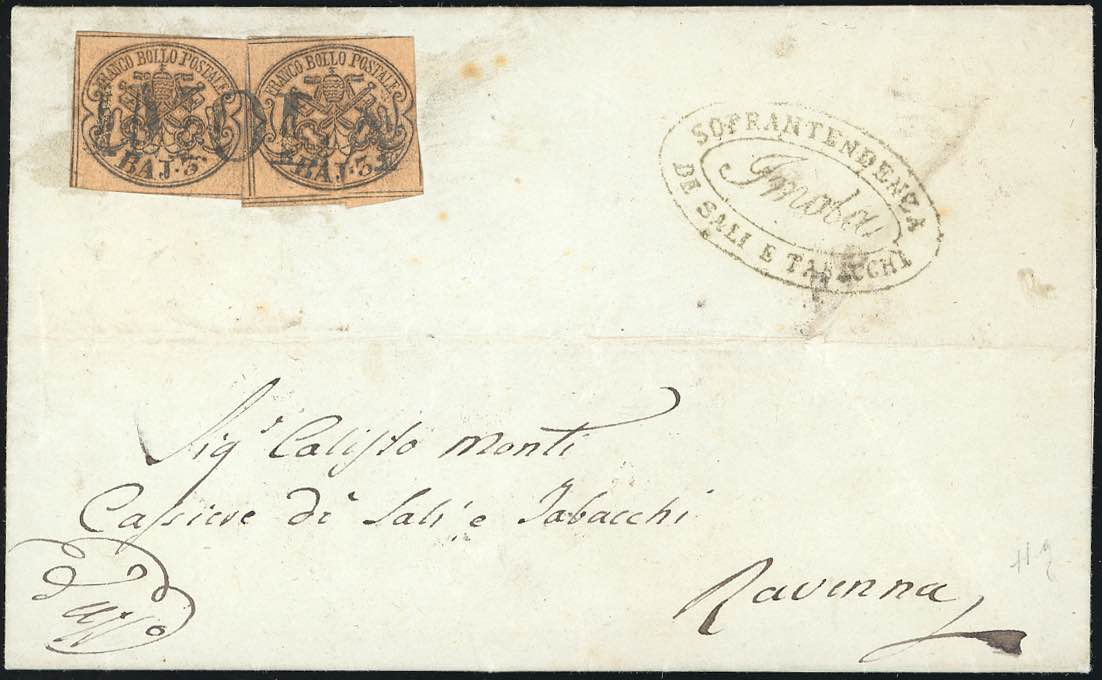 FRANCO BOLLO POSTALE
BAJ. 3.
FRANCO BOLLO POSTALE
BAJ. 3.
IMOLA
SOPRANTENDENZA
Imola
DI SALI E TABACCHI
Sigr. Calisto Monti
Cassiere di Sali e Tabacchi
Ravenna